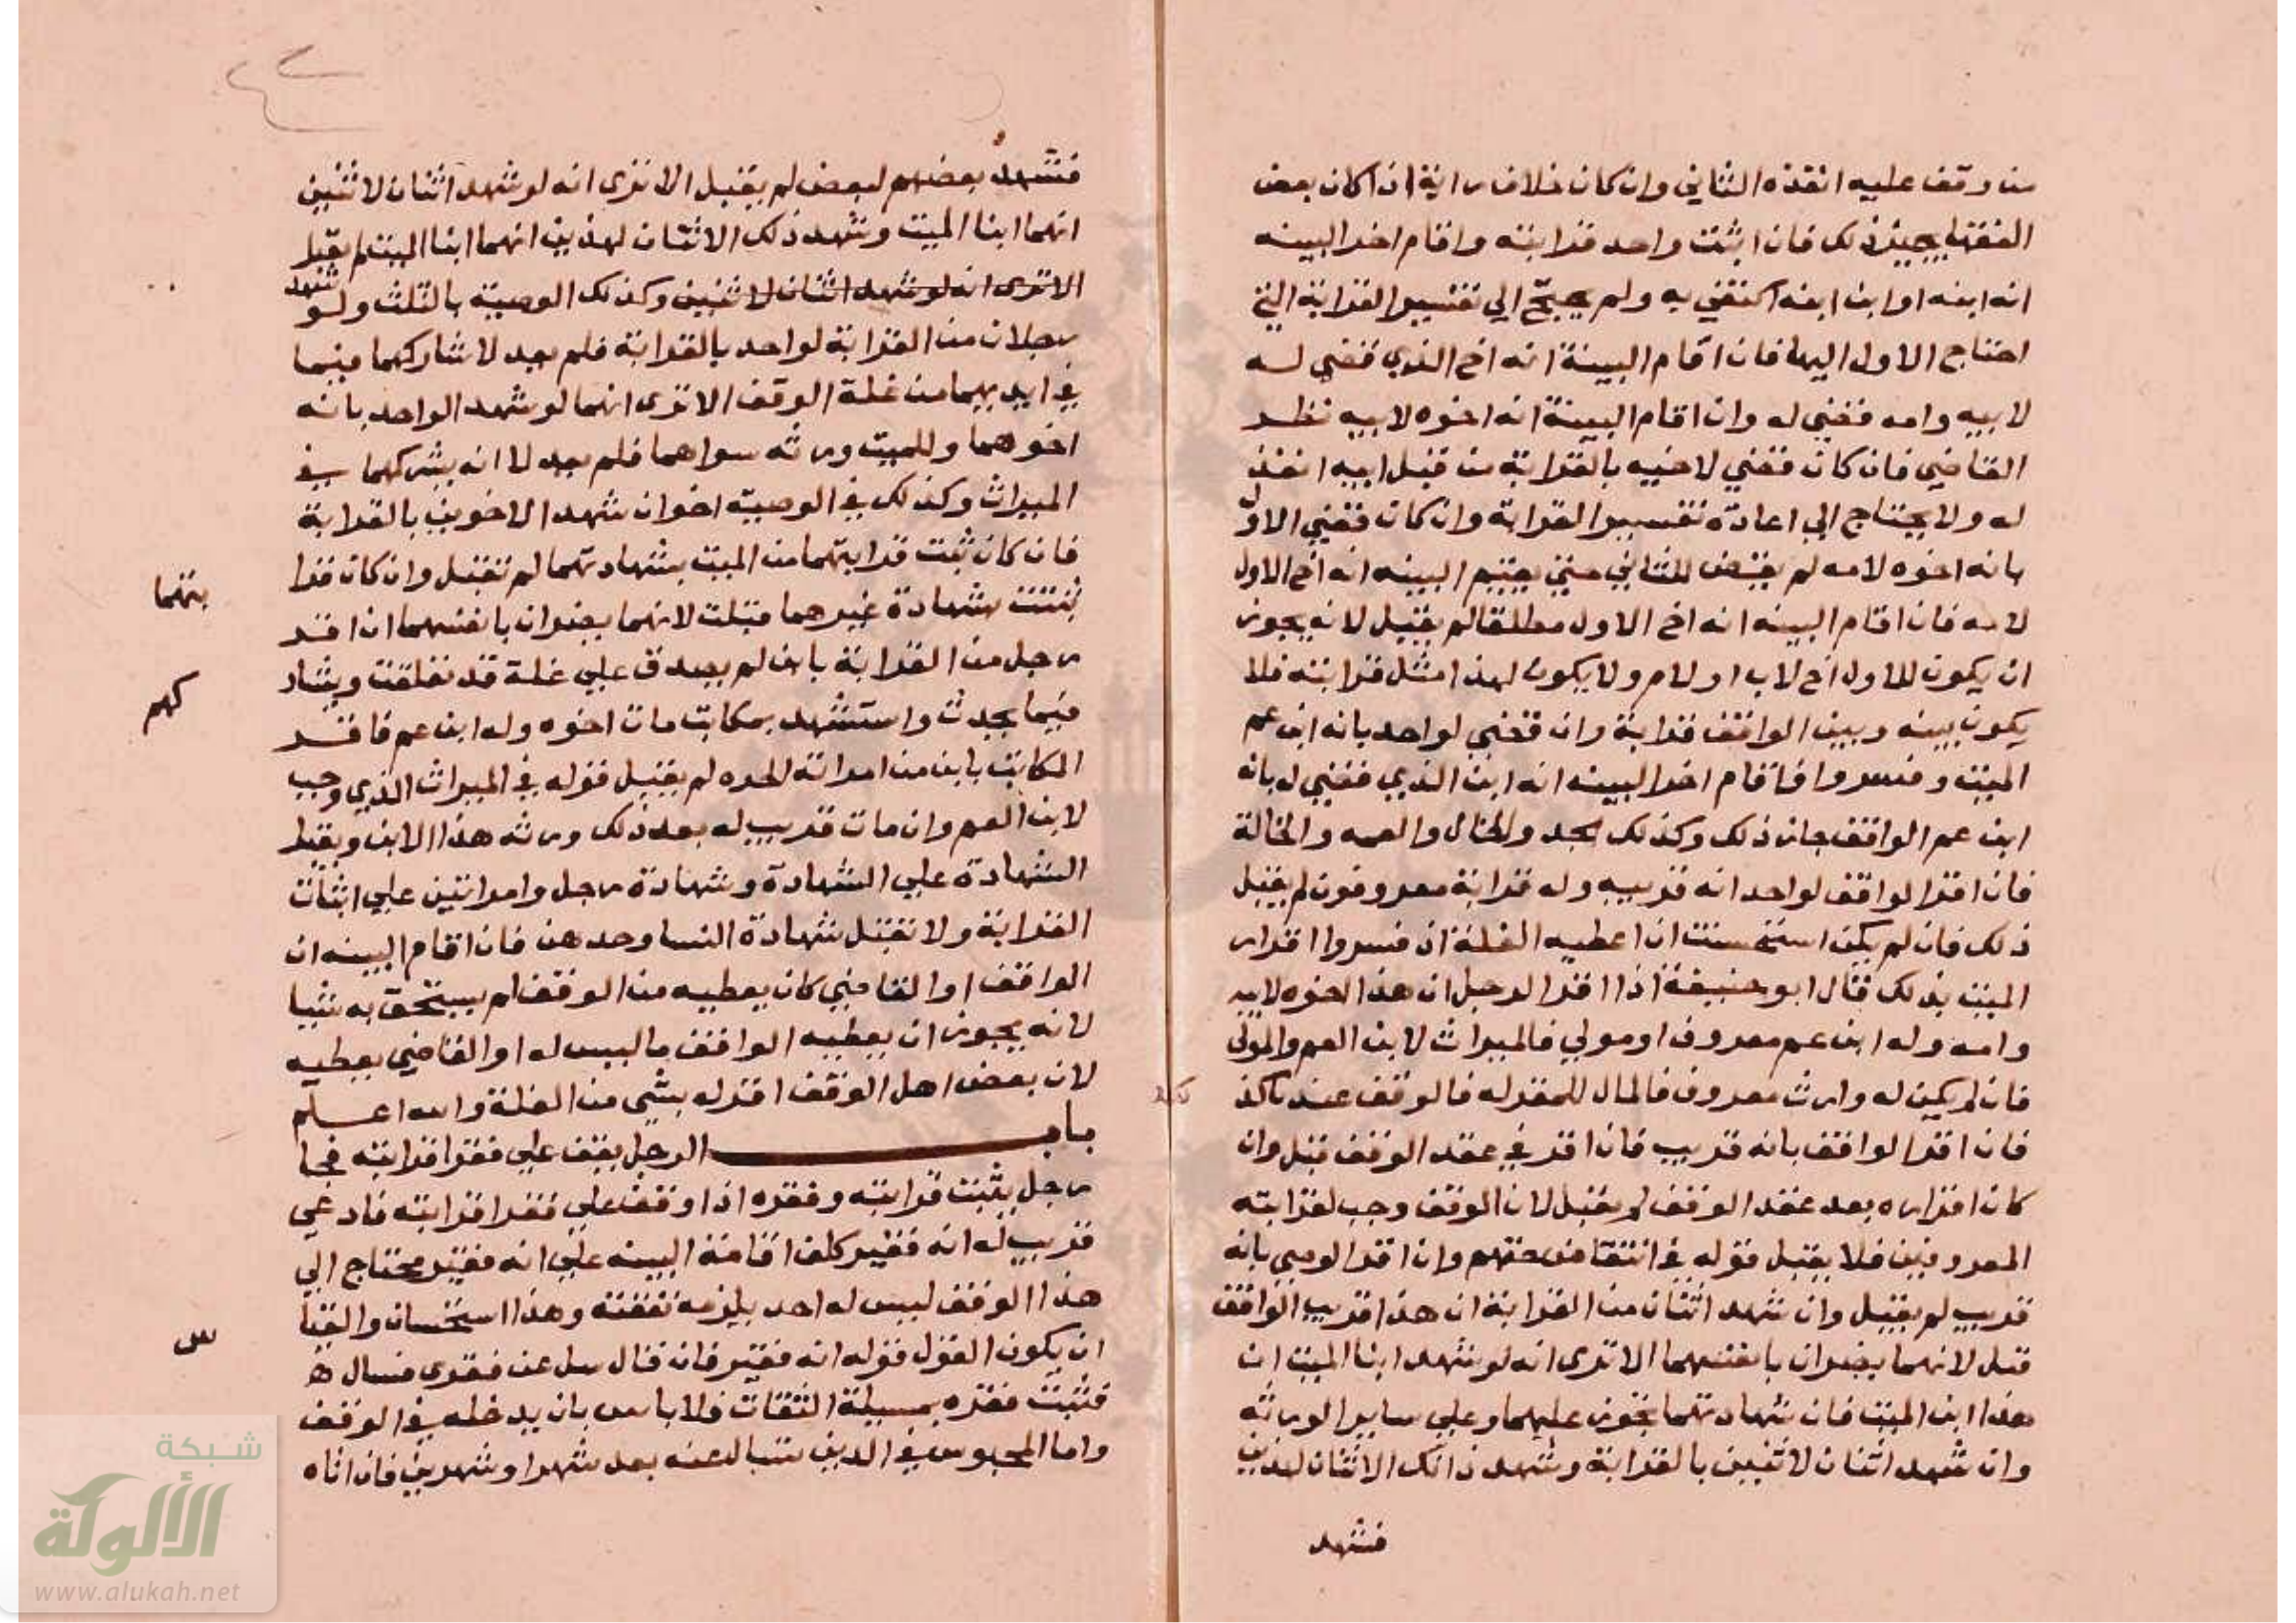 من وقف عليه انفذه الثاني وان كان خلاف رايه اذا كان بعض
الفقها يجيز ذلك فان اثبت واحد قرابته واقام اخر البينه
انه ابنه او ابن ابنه اكتفي به ولم يحتج الي تفسير القرابة التي
احتاج الاول اليها فان اقام البينة انه اخ الذي قضي له
لابيه وامه قضي له وان اقام البينة انه اخوه لابيه نظر
القاضي فان كان قضي لاخيه بالقرابة من قبل ابيه انفذ
له ولا يحتاج الي اعادة تفسير القرابة وان كان قضي الاول
بانه اخوه لامه لم يقض للثاني حتي يقيم البينه انه اخ الاول
لامه فان اقام البينه انه اخ الاول مطلقا لم يقبل لانه يجوز
ان يكون للاول اخ لاب او لام ولا يكون لهذا مثل قرابته فلا
يكون بينه وبين الواقف قرابة وان قضي لواحد بانه ابن عم
الميت وفسروا فاقام اخر البينه انه ابن الذي قضي له بانه
ابن عم الواقف جاز ذلك وكذلك الجد والخال والعمه والخالة
فان اقر الواقف لواحد انه قريبه وله قرابة معروفون لم يقبل
ذلك فان لم يكن استحسنت ان اعطيه الغلة اذ فسروا اقرار
الميت بذلك قال ابو حنيفة اذا اقر الرجل ان هذا اخوه لابيه
وامه وله ابن عم معروف او مولي فالميراث لابن العم والمولي
فان لم يكن له وارث معروف فالمال للمقر له فالوقف عندنا كذ
فان اقر الواقف بانه قريب فان اقر في عقد الوقف قبل وان
كان اقراره بعد عقد الوقف لم يقبل لان الوقف وجب لقرابته
المعروفين فلا يقبل قوله في انتقاض حقهم وان اقر الوصي بانه
قريب لم يقبل وان شهد اثنان من القرابة ان هذا قريب الواقف
قبل لانهما يضران بانفسهما الا تري انه لو شهد ابنا الميت ان
هذا ابن الميت فان شهادتهما تجوز عليهما وعلي ساير الورثه
وان شهد اثنان لاثنين بالقرابة وشهد ذانك الاثنان لهذين
فشهد
فشهد بعضهم لبعض لم يقبل الا تري انه لو شهد اثنان لاثنين
انهما ابنا الميت وشهد ذلك الاثنان لهذين انهما ابنا الميت لم يقبل
الا تري انه لو شهد اثنان لاثنين وكذلك الوصية بالثلث ولو شهد
رجلان من القرابة لواحد بالقرابة فلم يعدلا شاركهما فيما
في ايديهما من غلة الوقف الا تري انهما لو شهد الواحد بانه
اخوهما وللميت ورثه سواهما فلم يعدلا انه يشركهما في
الميراث وكذلك في الوصية اخوان شهد الاخوين بالقرابة
فان كان ثبت قرابتهما من الميت بشهادتهما لم تقبل وان كان قرا
بتهما
ثبتت بشهادة غيرهما قبلت لانهما يضران بانفسهما ان اقر
رجل من القرابة بابن لم يصدق علي غلة قد تعلقت ويشار
كهم
فيما يحدث واستشهد بمكاتب مات اخوه وله ابن عم فاقر
المكاتب بابن من امراته الحره لم يقبل قوله في الميراث الذي وجب
لابن العم وان مات قريب له بعد ذلك ورثه هذا الابن ويقبل
الشهادة علي الشهادة وشهادة رجل وامراتين علي اثبات
القرابة ولا تقبل شهادة النسا وحدهن فان اقام البينه ان
الواقف او القاضي كان يعطيه من الوقف لم يستحق به شيا
لانه يجوز ان يعطيه الواقف ما ليس له او القاضي يعطيه
لان بعض اهل الوقف اقر له بشي من الغلة والله اعلم
باب الرجل يقف علي فقرا قرابته فجا
رجل يثبت قرابته وفقره اذا وقف علي فقرا قرابته فادعي
قريب له انه فقير كلف اقامة البينه علي انه فقير محتاج الي
هذا الوقف ليس له احد يلزمه نفقته وهذا استحسان والقيا
س
ان يكون القول قوله انه فقير فان قال سل عن فقري فسال
فثبت فقره بمسيلة الثقات فلا باس بان يدخله في الوقف
واما المحبوس في الدين يسال عنه بعد شهر او شهرين فان اتاه
شبكة
الألوكة
www.alukah.net